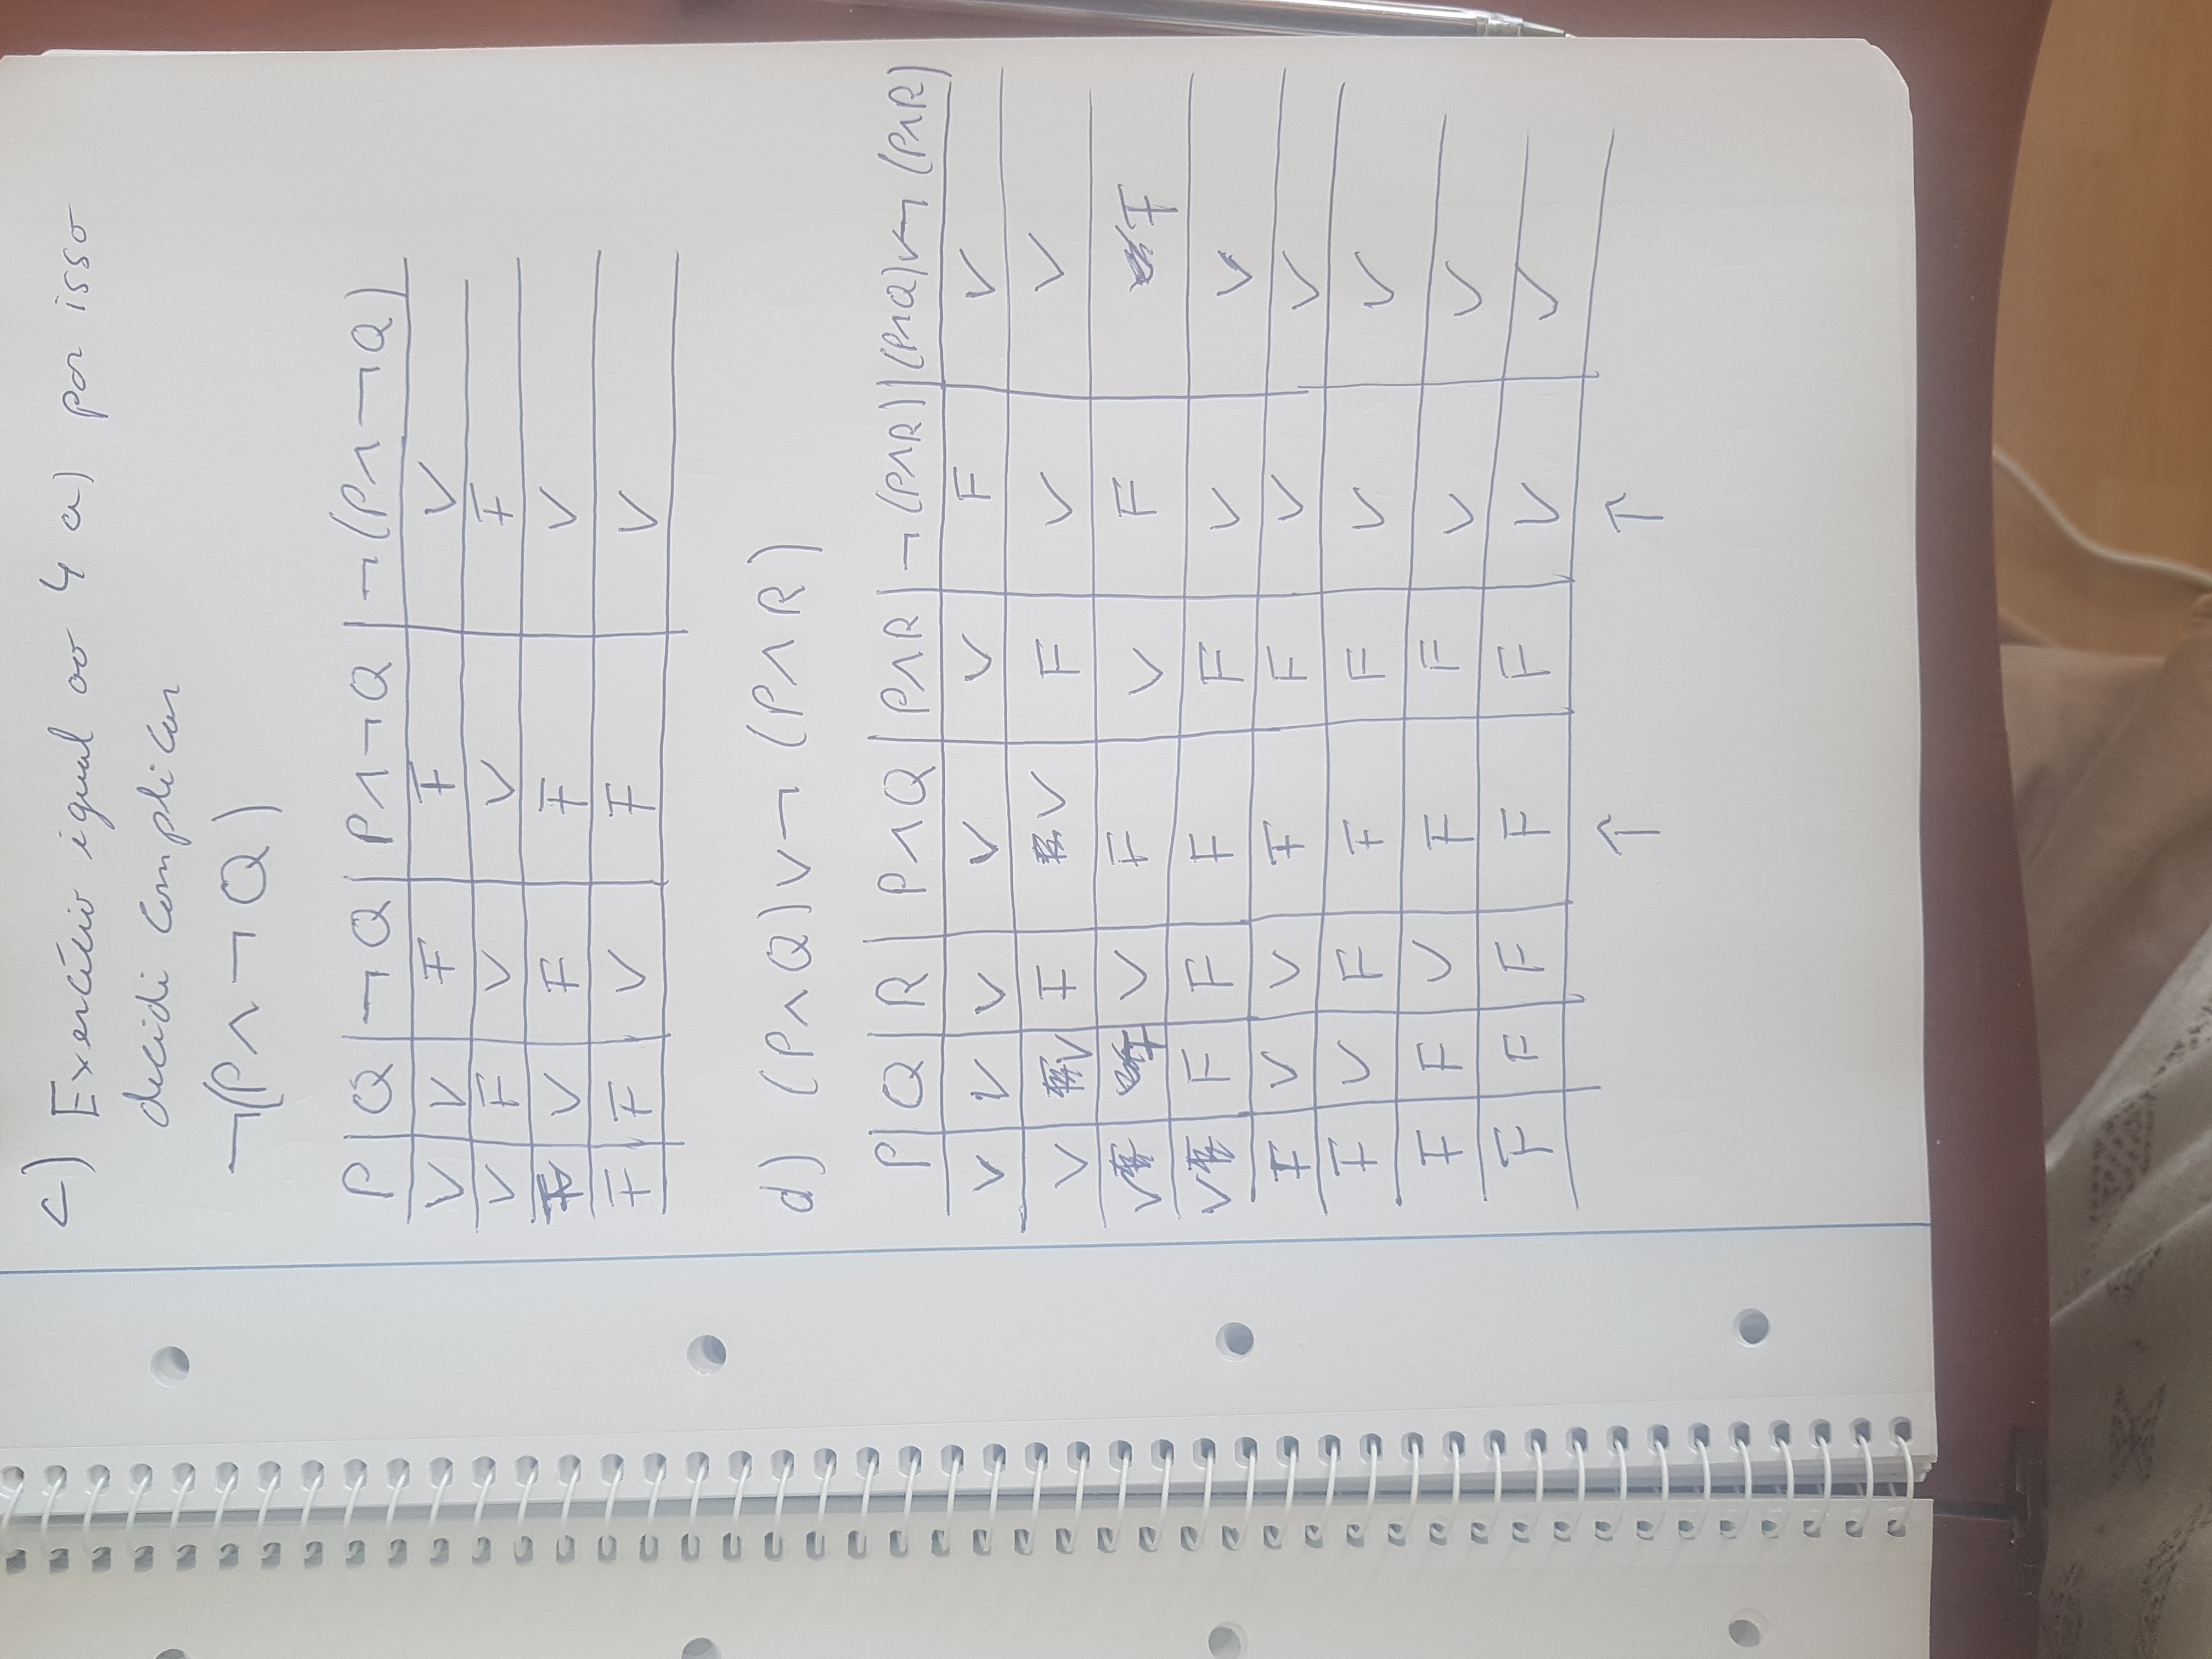 c) Exercício igual ao 4 a) por isso
decidi complicar
¬(P∧¬Q)
P Q ¬Q P∧¬Q ¬(P∧¬Q)
V V F F V
V F V V F
F V F F V
F F V F V
d) (P∧Q)∨¬(P∧R)
P Q R P∧Q P∧R ¬(P∧R) (P∧Q)∨¬(P∧R)
V V V V V F V
V V F V F V V
V F V F V F F
V F F F F V V
F V V F F V V
F V F F F V V
F F V F F V V
F F F F F V V
↑ ↑